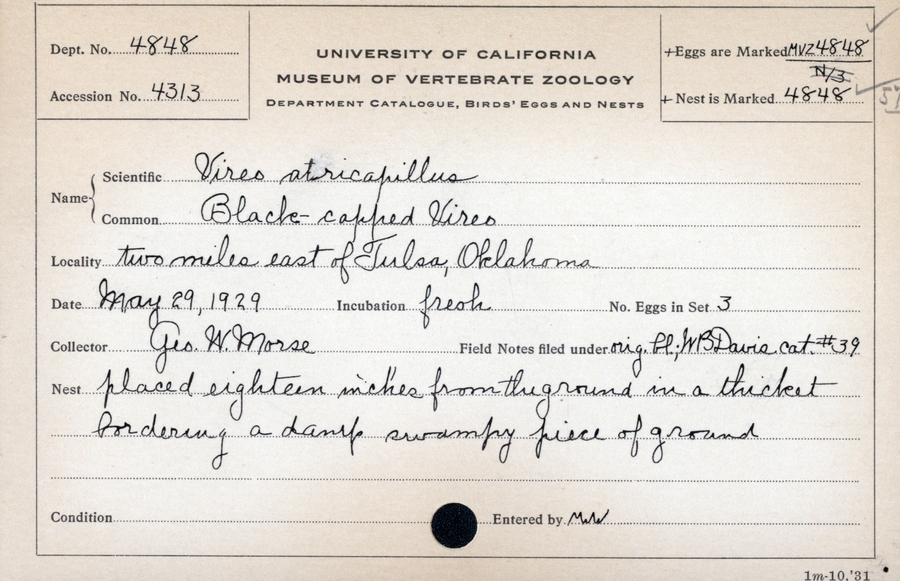 Dept. No. 4848
Accession No. 4313
UNIVERSITY OF CALIFORNIA
MUSEUM OF VERTEBRATE ZOOLOGY
DEPARTMENT CATALOGUE, BIRDS' EGGS AND NESTS
+Eggs are Marked MVZ4848
N/3
+ Nest is Marked 4848
Name
Scientific Vireo atricapillus
Common Black-capped Vireo
Locality two miles east of Tulsa, Oklahoma
Date May 29, 1929 Incubation fresh No. Eggs in Set 3
Collector Geo. W. Morse Field Notes filed under orig. bl; WBDavis cat. #39
Nest placed eighteen inches from the ground in a thicket
bordering a damp swampy piece of ground
Condition Entered by
1m-10,'31